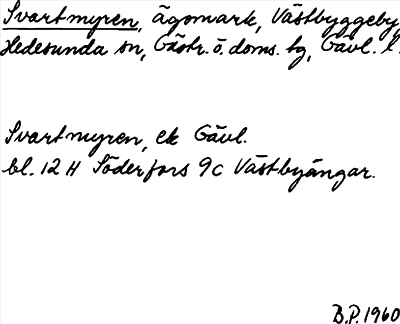 Svartmyren, ägomark, Västbyggeby,
Hedesunda sn, Gästr. ö. doms. tg, Gävl. l.
Svartmyren, ek Gävl.
bl. 12 H Söderfors 9c Västbyängar.
B.P. 1960